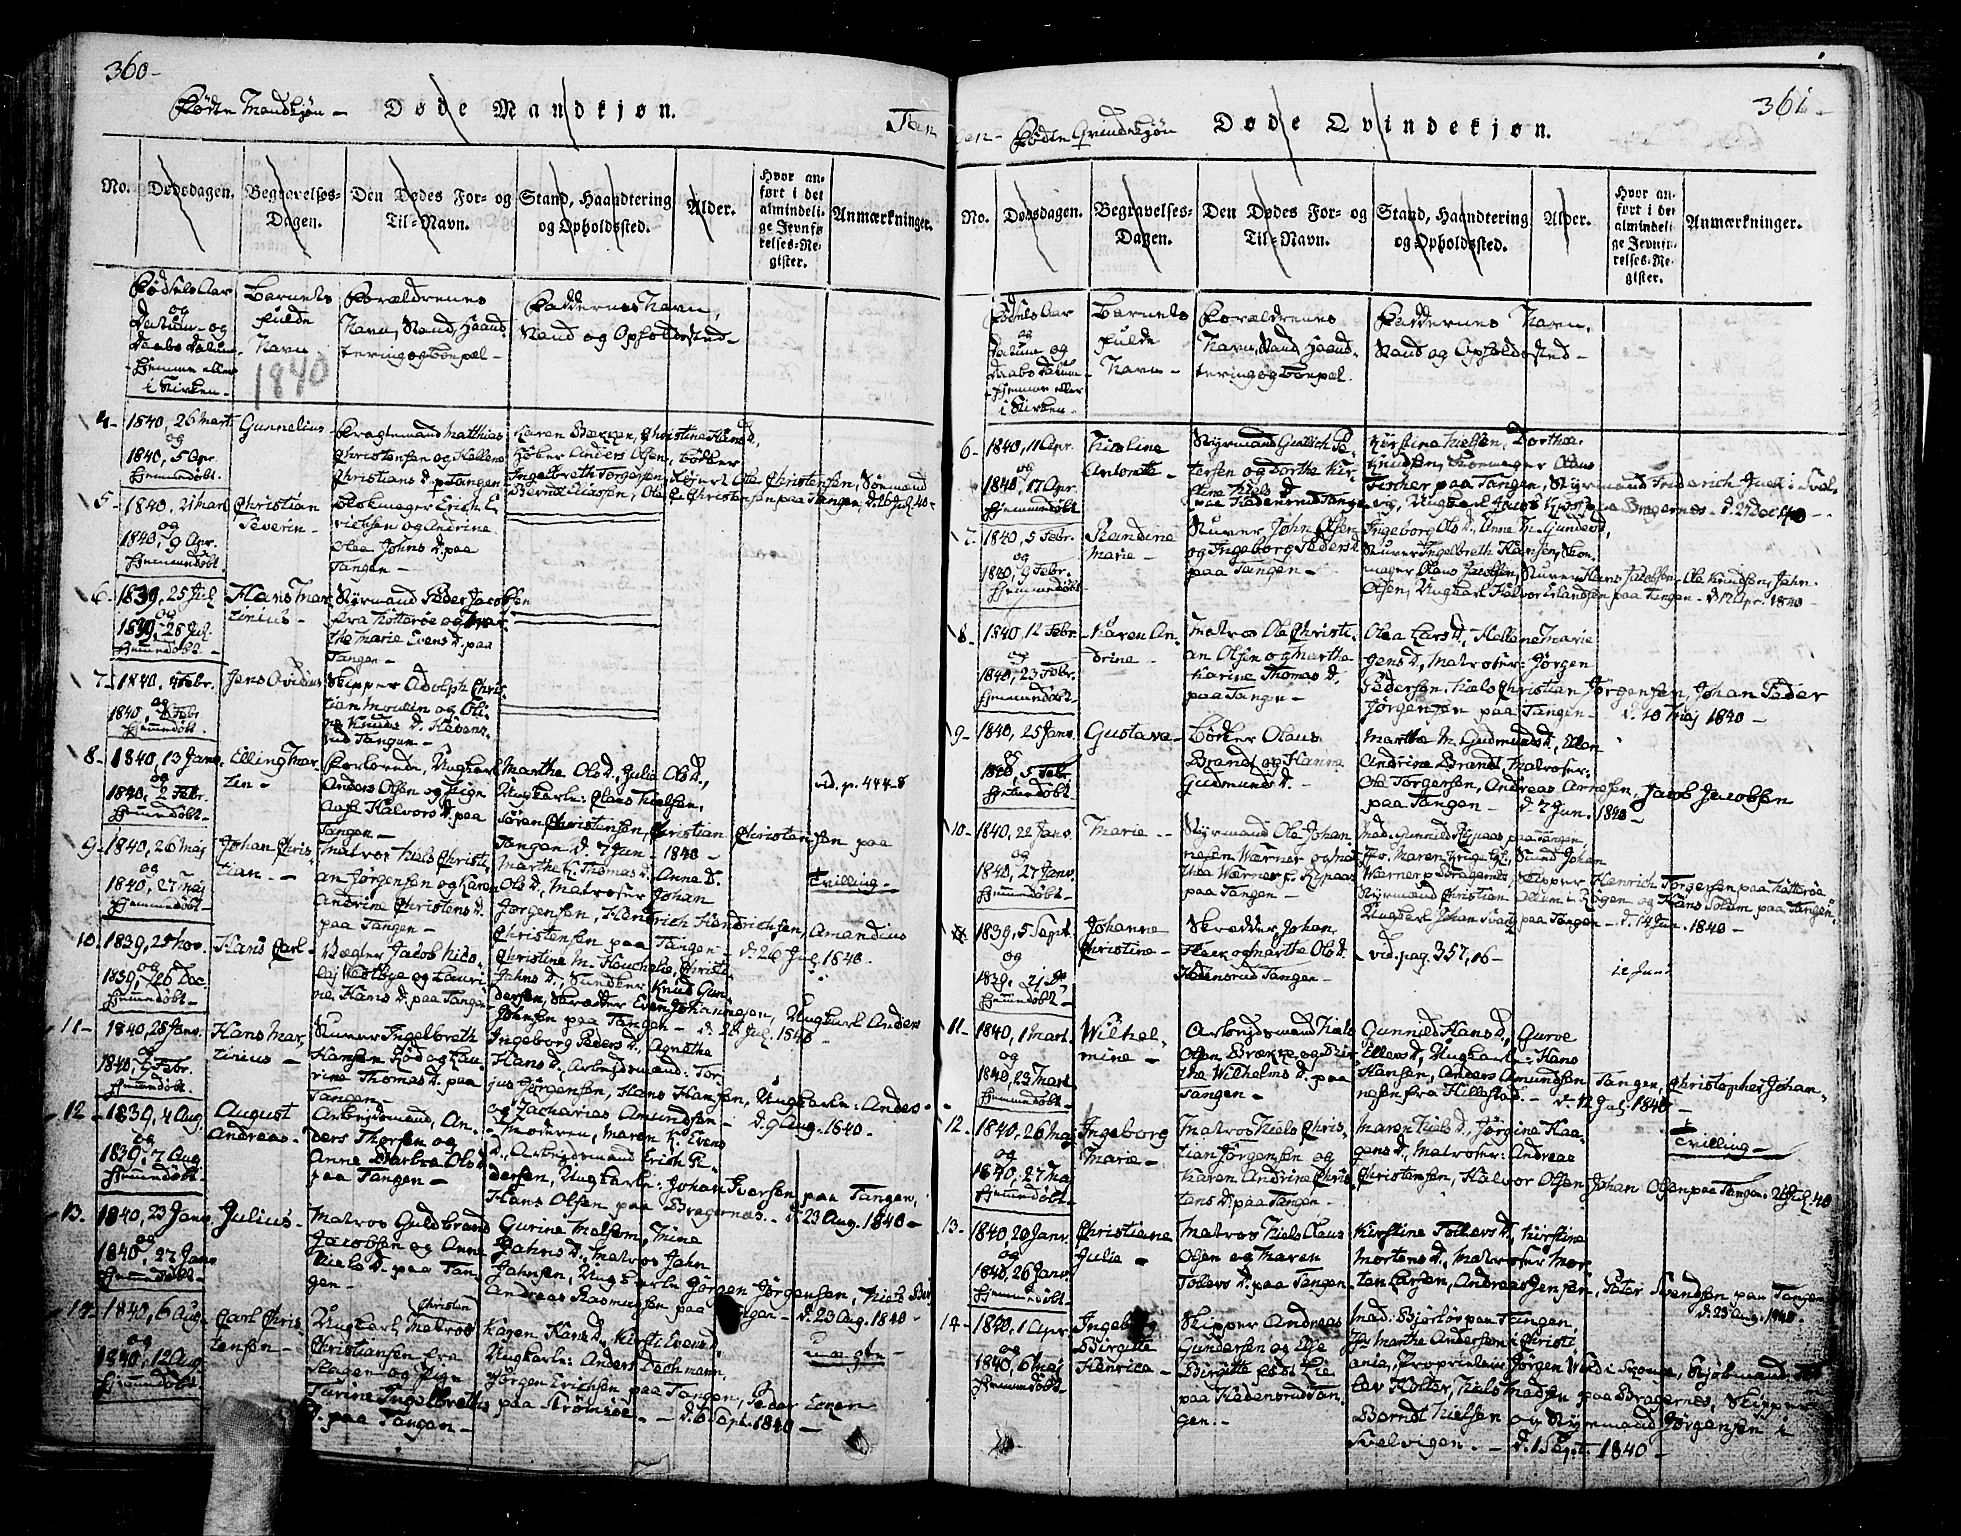 360-
Fødte Mandkjøn - Døde Mandkjøn.
Tan
No.
Dødsdagen.
Begravelses-
Dagen.
Den Dødes For- og
Til-Navn.
Stand, Haandtering
og Opholdssted.
Alder.
Hvor an-
ført i det
almindeli-
ge Jevnfø-
relses-Re-
gister.
Anmærkninger.
Fødsels Aar
og
Datum og
Daabs Datum
Hjemme eller
i Kirken -
Barnets
fulde
Navn
1840
Forældrenes
Navn, Stand, Haand-
tering og Bopæl -
Faddernes Navn,
Stand og Opholdssted -
4-
1840, 26 Mart
og
1840, 5 Apr.
Hjemmedøbt.
Gunnelius -
Fragtemand Matthias
Christensen og Hellene
Christians D. p Tangen
Karen Bækken, Christine Hans D.,
Anders Olsen,
Ingelbreth Torgersen,
5-
1840, 21 Mart
og
1840, 9 Apr.
Hjemmedøbt.
Christian
Severin -
Blokmager Erich E-
richsen og Andrine
Olea Johns D. paa
Tangen -
6-
1839, 25 Jul
og
1839, 28 Jul.
Hjemmedøbt -
Hans Mar-
tinius -
Styrmand Peder Jacobsen
fra Nøtterøe og Mar-
the Marie Evens D. paa
Tangen -
7-
1840, 4 Febr.
og
Hjemmedøbt -
Jens Ovidius
Skipper Adolph Chris-
tian Moulin og Oli-
ne Knuds D.
Tangen -
8-
1840, 13 Janv.
og
1840, 2 Febr.
Hjemmedøbt -
Elling Mar-
tin -
Forlovede, Ungkarl
Anders Olsen og Pige
Aase Halvors D. paa
Tangen -
Marthe Ols D., Julia Ols D.,
Ungkarle: Hans Nielsen,
Søren Christensen, Christian Christensen paa
Tangen d. 7 Jun. 1840 -
vid. p. 444-8
9-
1840, 26 Maj
og
1840, 27 Maj
Hjemmedøbt -
Johan Chris-
tian -
Matros Niels Christi-
an Jørgensen og Karen
Andrine Christens D.
paa Tangen -
Marthe K. Thomas D., Anne D.
Ols D., Matroser Johan
Jørgensen, Hendrich Hendrichsen, Amandius
Christensen paa Tangen - d. 26 Jul. 1840.
Tvilling -
10-
1839, 25 Nov.
og
1839, 26 Dec.
Hjemmedøbt -
Hans Carl -
Vægter Jacob Nico-
laj Kestbye og Lauri-
ne Hans D. paa Tangen
Johns D.,
Skrædder Even Johannesen, Ungkarl Anders
Johnsen paa Tangen - d. 26 Jul. 1840 -
11-
1840, 28 Janv.
og
Hjemmedøbt -
Hans Mar-
tinius -
Stuver Ingelbreth
Hansen Fjød og Lau-
rine Thomas D. paa
Tangen -
Ingeborg Peders D., Agnethe
Hans D., Arbejdsmænd: Tor-
jus Jørgensen, Hans Hansen, Ungkarle: Anders
og Zacharias Amundsen - d. 9 Aug. 1840 -
12-
1839, 4 Aug.
og
1839, 7 Aug.
Hjemmedøbt -
August
Andreas -
Arbejdsmand, An-
ders Thorsen og
Anne Barbra Ols D.
paa Tangen -
Moderen, Maren K. Evens
D., Arbejdsmænd Erich Pe-
dersen, Ungkarle: Johan Iversen paa Tangen,
Hans Olsen paa Bragernæs - d. 23 Aug. 1840 -
13-
1840, 23 Janv.
og
1840, 27 Janv.
Hjemmedøbt -
Julius -
Matros Guldbrand
Jacobsen og Anne
Niels D. paa Tan-
gen -
Gurine Malsom, Mine
Jahns D., Matros Jahn
Jahnsen, Ungkarle Jørgen Jørgensen,
Andreas Rasmussen paa Tangen - d. 23 Aug. 1840 -
14-
1840, 6 Aug.
og
1840, 12 Aug.
Hjemmedøbt -
Carl Chris-
tensen -
Ungkarl Christen Matros
Christiansen fra
Skagen og Pige
Tarine Ingelbreths
D. paa Tangen -
Karen Hans D., Kirsti Evens D.,
Ungkarle: Anders Dechmann,
Jørgen Erichsen paa Tangen, Peder
paa Strømsøe - d. 6 Sept. 1840 -
uægte -
361-
gen - Fødte Qvindekjøn Døde Qvindekjøn.
No.
Dødsdagen.
Begravelses-
Dagen.
Den Dødes For- og
Til-Navn.
Stand, Haandtering
og Opholdssted.
Alder.
Hvor an-
ført i det
almindeli-
ge Jevnfø-
relses-Re-
gister.
Anmærkninger.
Fødsels Aar
og
Datum og
Daabs Datum
Hjemme eller
i Kirken -
Barnets
fulde
Navn -
Forældrenes
Navn, Stand, Haand-
tering og Bopæl.
Faddernes Navn,
Stand og Opholdssted -
6-
1840, 11 Apr.
og
1840, 17 Apr.
Hjemmedøbt
Nicoline
Antonette -
Styrmand Gullich Pe-
tersen og Dorthe Kir-
stine Niels D.
Kirstine Nielsen, Dorthea
Knudsen, Skomager Olaus
Fischer paa Tangen, Styrmand Friderich Juel i Svel-
vig, Ungkarl Jacob paa Bragernæs - d. 27 Dec. 40 -
7-
1840, 5 Febr.
og
1840, 9 Febr.
Hjemmedøbt -
Randine
Marie -
Stuver John Olsen
og Ingeborg Peders D.
paa Tangen -
Ingeborg Ols D., Anne M. Gunders D.,
Stuver Ingelbreth Hansen, Sko-
mager Olaus Jacobsen, Stuver Hans Jacobsen, Ole Knudsen, Jahn
Olsen, Ungkarl Halvor Erlandsen paa Tangen - d. 12 Apr. 1840 -
8-
1840, 12 Febr.
og
1840, 23 Febr.
Hjemmedøbt -
Karen An-
drine -
Matros Ole Christi-
an Olsen og Marthe
Karine Thomas D.
paa Tangen -
Olea Lars D., Hellene Marie
Jens D., Matroser: Jørgen
Pedersen, Niels Christian Jørgensen, Johan Peder
Jørgensen paa Tangen - d. 10 Maj 1840 -
9-
1840, 25 Janv.
og
1840, 5 Febr.
Hjemmedøbt -
Gustava -
Bødker Olaus
Brandt og Hanna
Gudmunds D. -
Marthe M. Gudmunds D., Ellen
Andrine Brandt, Matroser:
Ole Torgersen, Andreas Arnesen, Jacob Jacobsen
paa Tangen - d. 7 Jun. 1840 -
10-
1840, 22 Janv.
og
1840, 27 Janv.
Hjemmedøbt -
Marie -
Styrmand Ole Johan-
nesen Wærner og Mar-
the Wærner f. Rypaas
paa Tangen -
Mad. Gunnild Rypaas paa Tangen,
Jfr. Maren Krüge Johan
Wærner p Bragernæs, Skipper Henrich Torgersen paa Nøtterøe
Styrmand Christian i Røgen og Hans Solum paa Tangen,
Ungkarl Johan Svartz paa Tangen - d. 14 Jun. 1840 -
1839, 5 Sept.
og
Hjemmedøbt -
Johanne
Christine -
Skrædder Johan
Fleck og Marthe Ols D.
Hedensrud Tangen -
vid. pag 357, 16 -
11-
1840, 1 Mart.
og
1840, 23 Mart
Hjemmedøbt -
Wilhel-
mine -
Arbejdsmand Niels
Olsen Brække og Ber-
the Wilhelms D. paa
Tangen -
Gunnild Hans D., Gurve
Ellevs D., Ungkarle: Hans
Hansen, Anders Amundsen Tangen, Christopher Johan-
nesen fra Hillestad - d. 12 Jul. 1840 -
12-
1840, 26 Maj
og
1840, 27 Maj
Hjemmedøbt -
Ingeborg
Marie -
Matros Niels Chris-
tian Jørgensen og
Karen Andrine Chris-
tens D. paa Tangen -
Maren Niels D., Jørgine Haa-
gens D., Matroser: Andreas
Christensen, Halvor Olsen, Johan Olsen paa Tangen. 26 Jul. 40
Tvilling -
13-
1840, 20 Janv.
og
1840, 26 Janv.
Hjemmedøbt -
Christiane
Julia -
Matros Niels Olaus
Olsen og Maren
Tolevs D. paa Tangen -
Kirstine Tollevs D., Kirstine
Mortens D., Matroser Mor-
ten Larsen, Andreas Jensen, Peter Svendsen paa Tangen
d. 23 Aug. 1840.
14-
1840, 1 Apr.
og
1840, 6 Maj
Hjemmedøbt -
Ingeborg
Birgitte
Henrica -
Skipper Andreas
Gundersen og Else
Birgitte født Lie
paa Hedensrud Tan-
gen -
Mad. Bjørløv paa Tangen,
Jfr Marthe Andersen i Christi-
ania, Proprietair Jørgen Wold i Skouge, Kjøbmand
Niels Madsen paa Bragernæs, Skipper
Berndt Nielsen og Styrmand Jørgensen i
Svelvigen. - d. 1 Sept. 1840 -